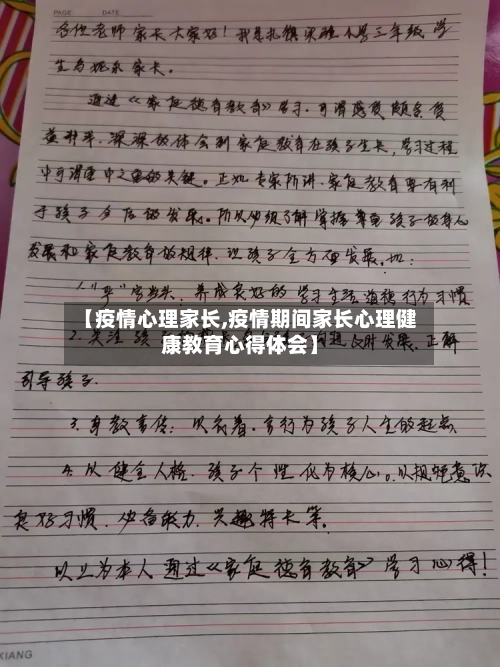 PAGE
DATE
各位老师家长大家好！我是扎镇实验小学三年级学
生
家长。
通过《家庭德育教育》学习，可谓感觉颇多受
益非浅，深深的体会到家庭教育在孩子生长，学习过程
中可谓重中之重的关键。正如专家所讲，家庭教育要有利
于孩子今后的发展。所以必须了解掌握尊重孩子的身心
发展和家庭教育的规律，让孩子全方面发展。如：
1."严"字当头，养成良好的学习生活道德行为习惯
【疫情心理家长,疫情期间家长心理健
康教育心得体会】
2.关注孩
及时发展，正解
引导孩子.
3.身教言传：以身着，言行为孩子人生的起点
4.从健全人格，孩子个性化为核心。以规矩意识
良好习惯，必备能力，兴趣特长等。
以上为本人通过《家庭德育教育》学习心得！
XIANG